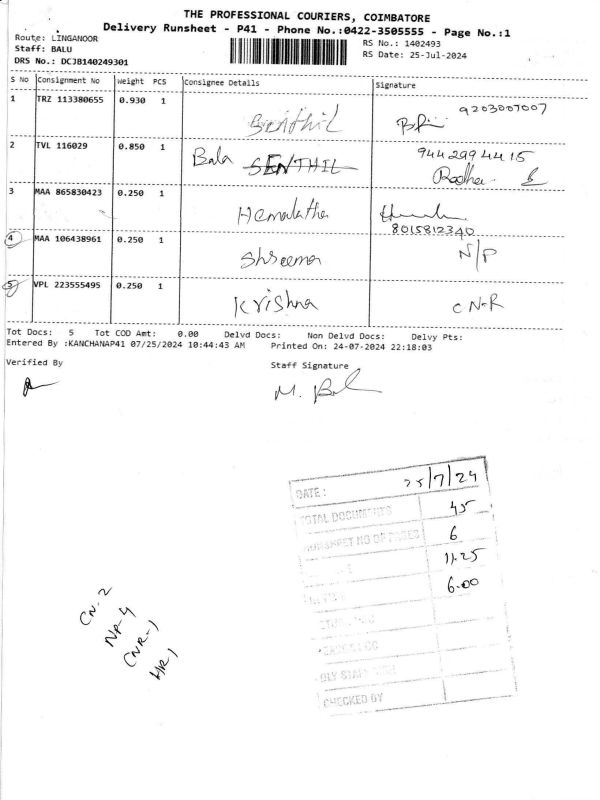 THE PROFESSIONAL COURIERS, COIMBATORE
Delivery Runsheet - P41 - Phone No.:0422-3505555 - Page No.:1
Route: LINGANOOR
Staff: BALU
DRS No.: DCJB140249301
RS No.: 1402493
RS Date: 25-Jul-2024
S No Consignment No Weight PCS Consignee Details Signature
1 TRZ 113380655 0.930 1 Senthil 9203007007
2 TVL 116029 0.850 1 Bala SENTHIL 9442994415
Radha
3 MAA 865830423 0.250 1 Hemalatha
8015812340
4 MAA 106438961 0.250 1 Shreema N/P
5 VPL 223555495 0.250 1 Krishna CN-R
Tot Docs: 5 Tot COD Amt: 0.00 Delvd Docs: Non Delvd Docs: Delvy Pts:
Entered By :KANCHANAP41 07/25/2024 10:44:43 AM Printed On: 24-07-2024 22:18:03
Verified By Staff Signature
M. Bal
DATE: 25/7/24
TOTAL DOCUMENTS 45
RUNSHEET NO OF PAGES 6
11.25
6.00
CHECKED BY
CN. 2
NP-4
CNR-1
HR1